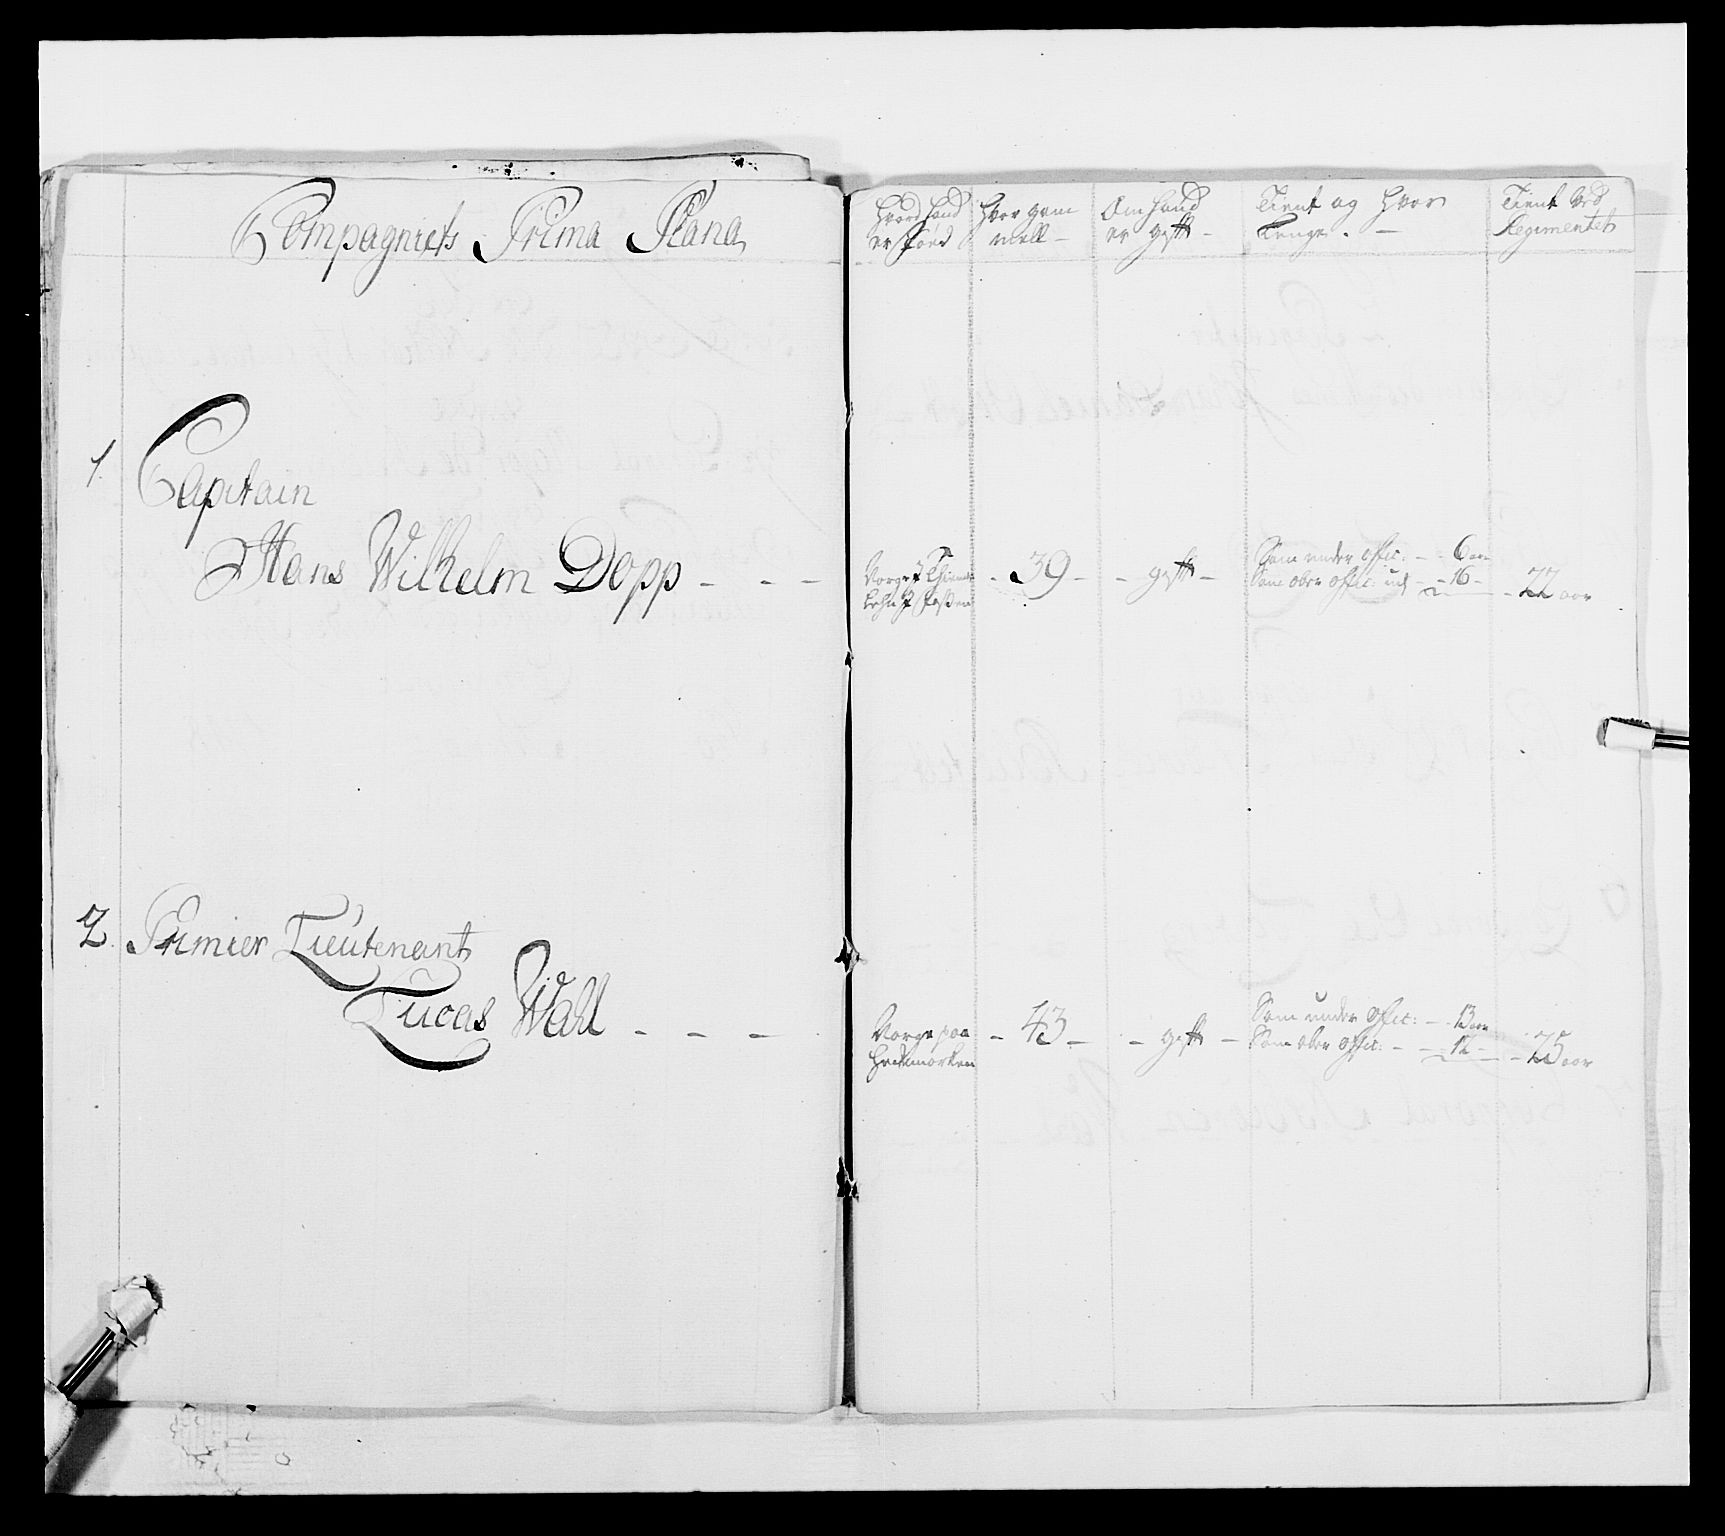 Compagniets Prima Plana
1.
Capitain
Hans Wilhelm Dopp - - -
2. Premier Lieutenant
Lucas Wall - - -
Hvord hand
er Föed
Hvor gam
mell -
Om hand
er gifft -
Tient og Hvor
Lenge. -
Tient ved
Regimentet
Norge
- 39 -
- gifft -
Som under offic: - - 6 aar
Som ober offic: - 16 -
- 22 aar
Norge paa
Hedemarken
- 43 -
- gifft -
Som under offic: - 13 aar
Som ober offic: - - 12 -
- 25 aar